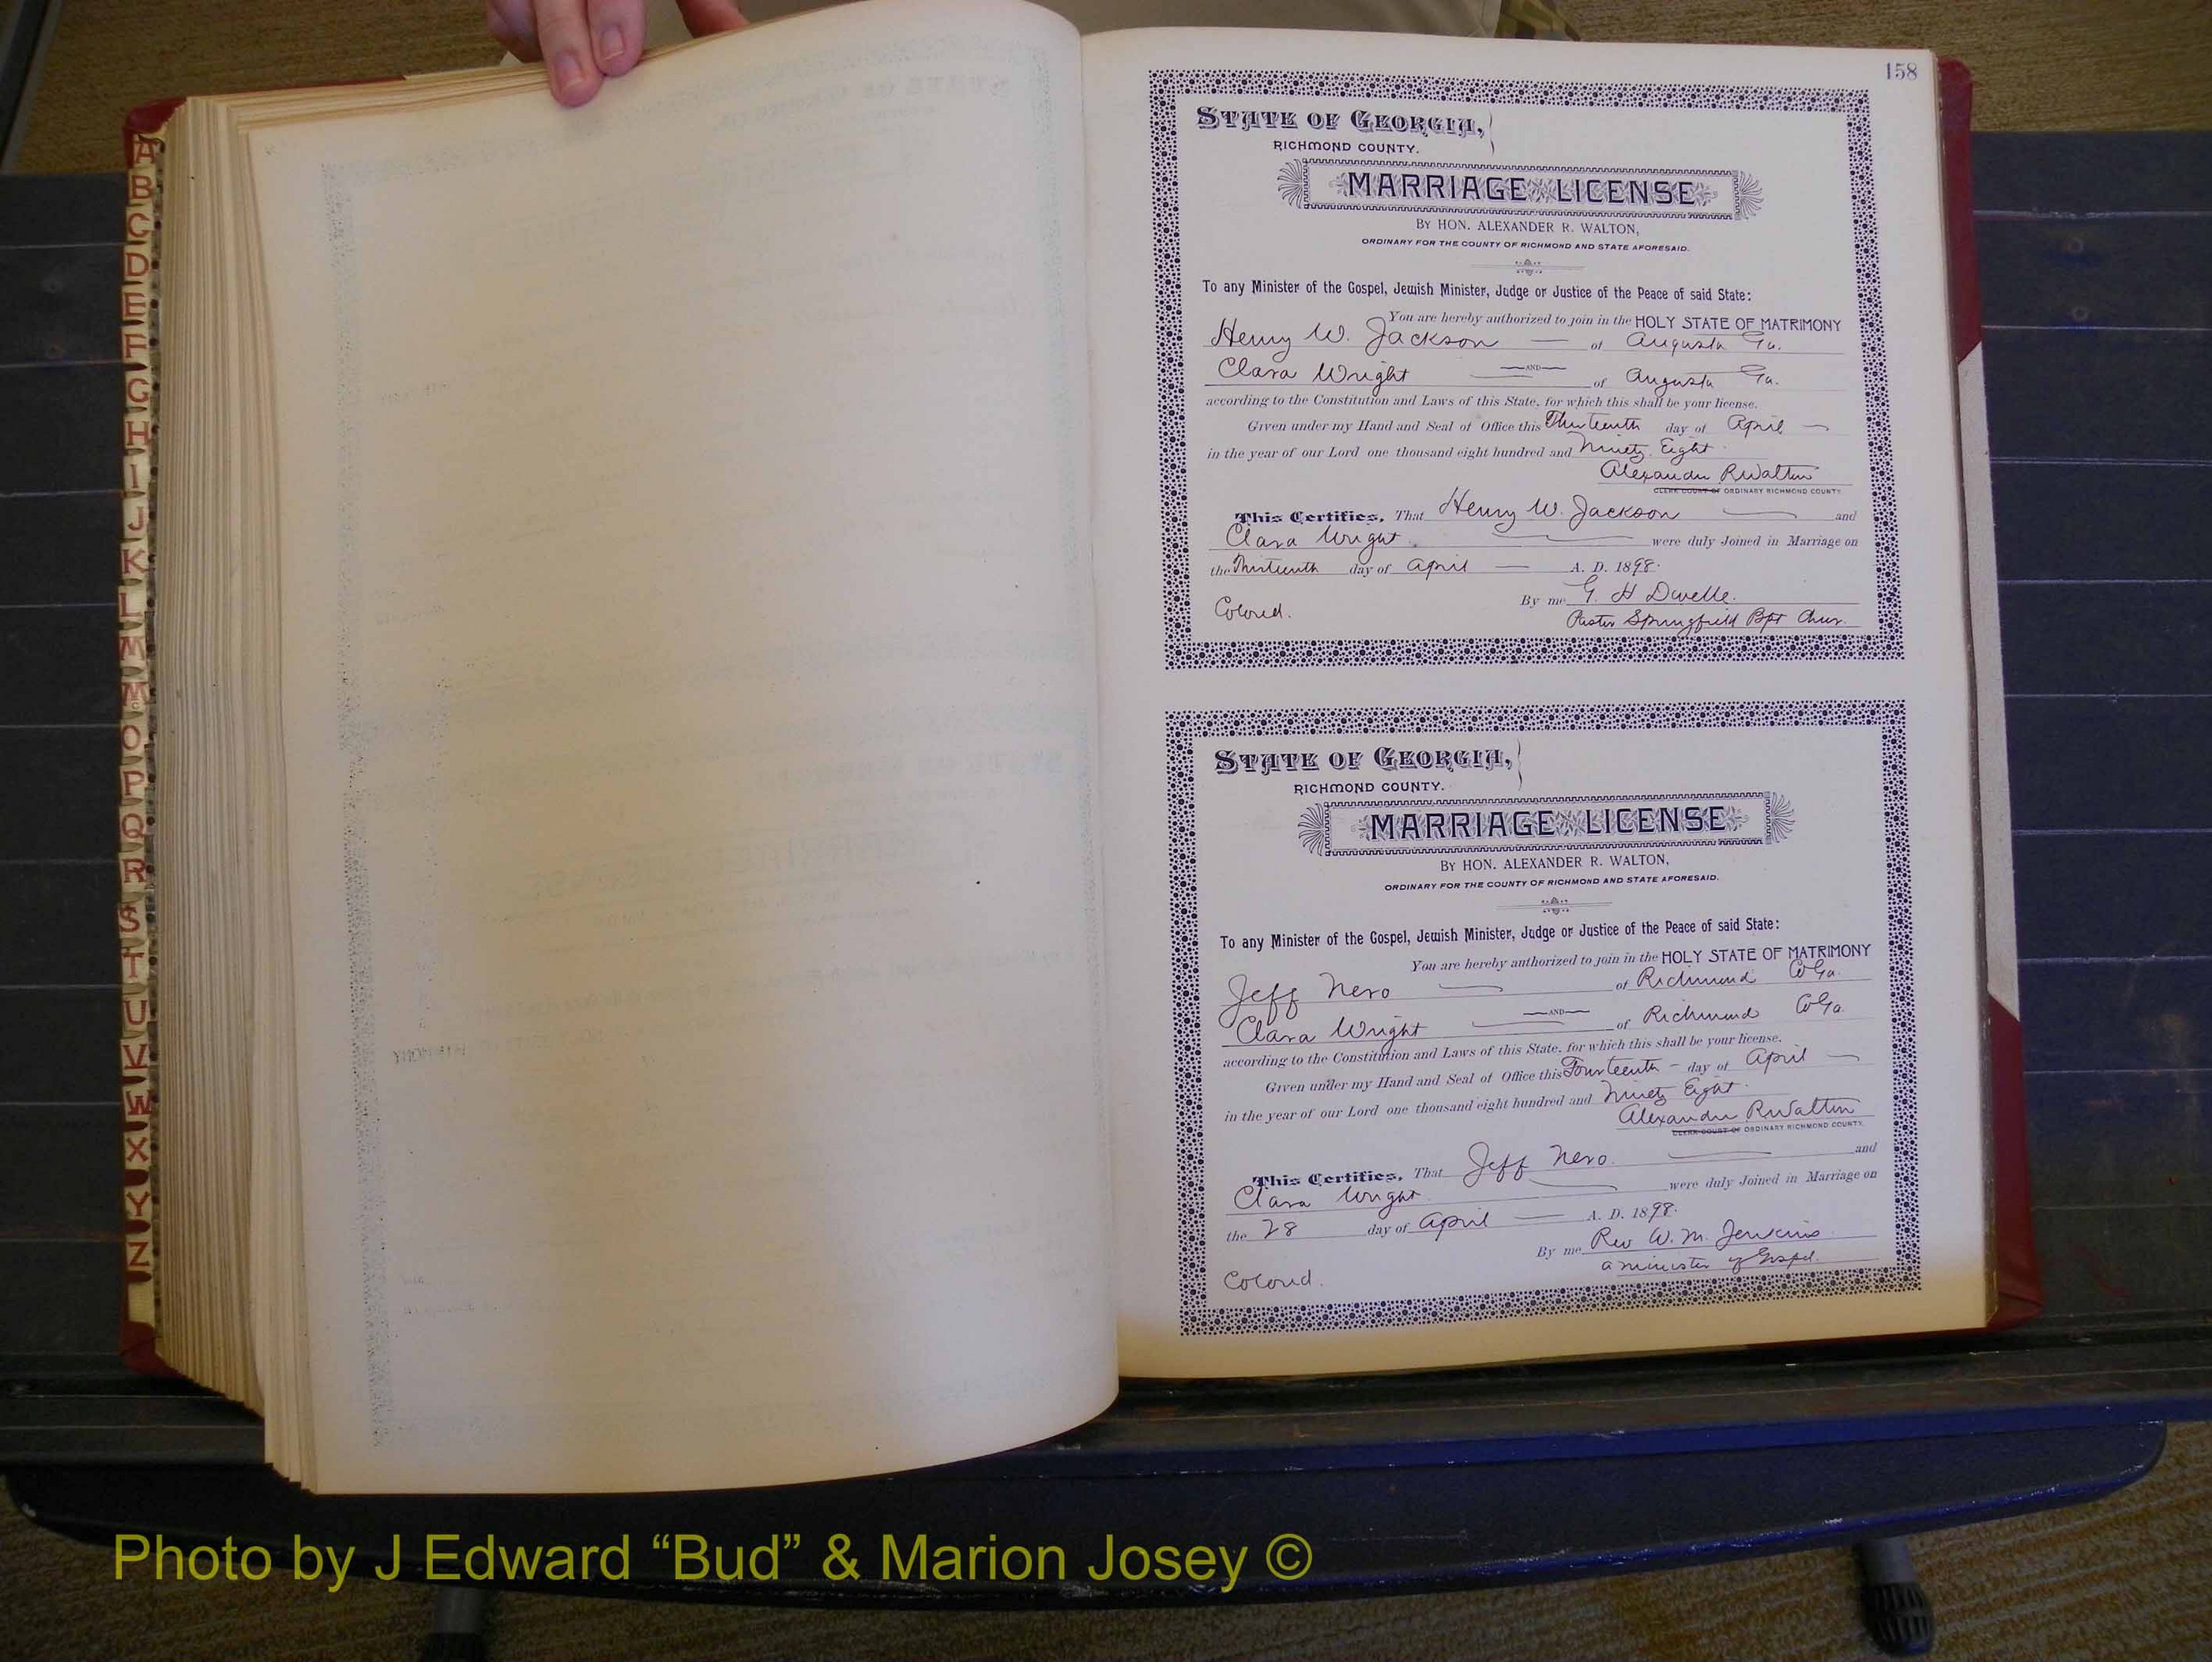 158
STATE OF GEORGIA,
RICHMOND COUNTY.
MARRIAGE LICENSE
BY HON. ALEXANDER R. WALTON,
ORDINARY FOR THE COUNTY OF RICHMOND AND STATE AFORESAID.
To any Minister of the Gospel, Jewish Minister, Judge or Justice of the Peace of said State:
You are hereby authorized to join in the HOLY STATE OF MATRIMONY
Henry W. Jackson — of Augusta Ga.
—AND—
Clara Wright of Augusta Ga.
according to the Constitution and Laws of this State, for which this shall be your license.
Given under my Hand and Seal of Office this Thirteenth day of April —
in the year of our Lord one thousand eight hundred and Ninety Eight.
Alexander R Walton
CLERK COURT OF ORDINARY RICHMOND COUNTY.
This Certifies, That Henry W. Jackson and
Clara Wright were duly Joined in Marriage on
the Thirteenth day of April — A. D. 1898.
By me G. H Dwelle.
Colored. Pastor Springfield Bpt Chur.
STATE OF GEORGIA,
RICHMOND COUNTY.
MARRIAGE LICENSE
BY HON. ALEXANDER R. WALTON,
ORDINARY FOR THE COUNTY OF RICHMOND AND STATE AFORESAID.
To any Minister of the Gospel, Jewish Minister, Judge or Justice of the Peace of said State:
You are hereby authorized to join in the HOLY STATE OF MATRIMONY
Jeff Nero of Richmond Co Ga.
—AND—
Clara Wright of Richmond Co Ga.
according to the Constitution and Laws of this State, for which this shall be your license.
Given under my Hand and Seal of Office this Fourteenth - day of April —
in the year of our Lord one thousand eight hundred and Ninety Eight.
Alexander R Walton
CLERK COURT OF ORDINARY RICHMOND COUNTY.
This Certifies, That Jeff Nero. and
Clara Wright were duly Joined in Marriage on
the 28 day of April — A. D. 1898.
By me Rev W. M. Jenkins
a minister of Gospel.
Colored.
A
B
C
D
E
F
G
H
I
J
K
L
M
Mc
O
P
Q
R
S
T
U
V
W
X
Y
Z
Photo by J Edward “Bud” & Marion Josey ©